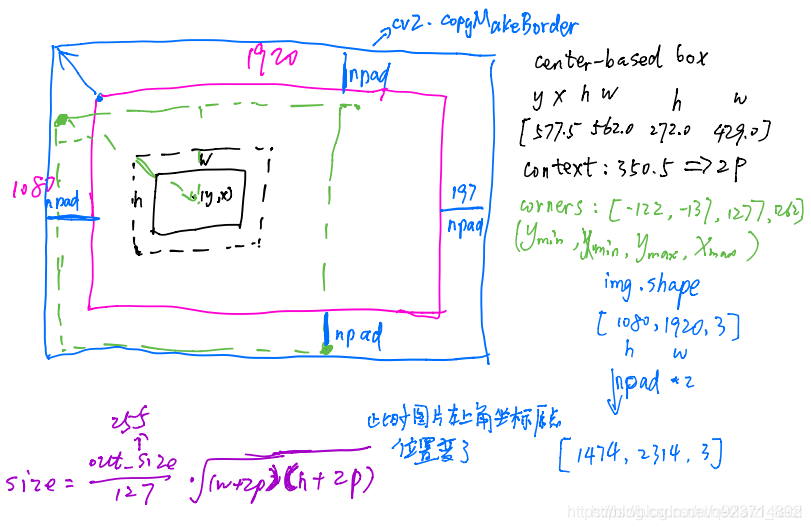 cv2.copyMakeBorder
1920
npad
1080
npad
w
h
(y,x)
197
npad
npad
center-based box
y x h w h w
[577.5 562.0 272.0 429.0]
context: 350.5 => 2P
corners: [-122, -137, 1277, 1262]
(ymin, xmin, ymax, xmax)
img.shape
[1080, 1920, 3]
h w
npad *2
[1474, 2314, 3]
此时图片左上角坐标原点
位置变了
255
size = out_size / 127 · √(w+2p)(h+2p)